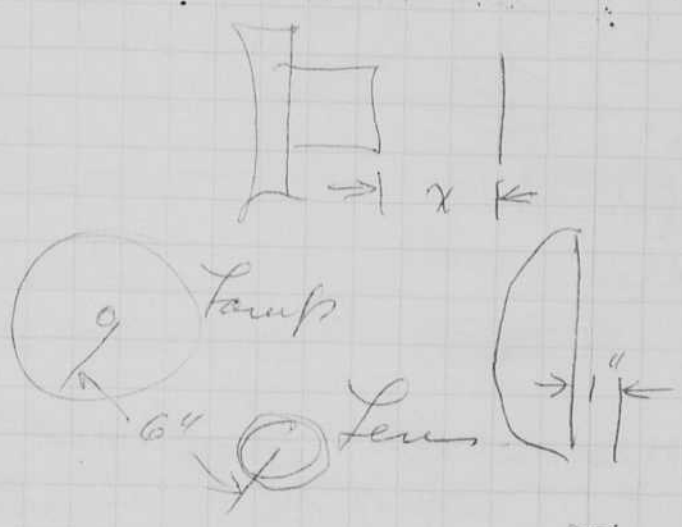 x
Lamp
1"
6"
Lens